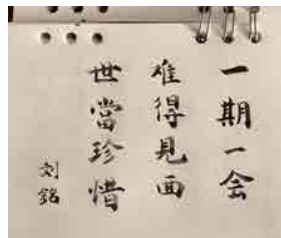 一期一会
难得見面
世當珍惜
刘銘